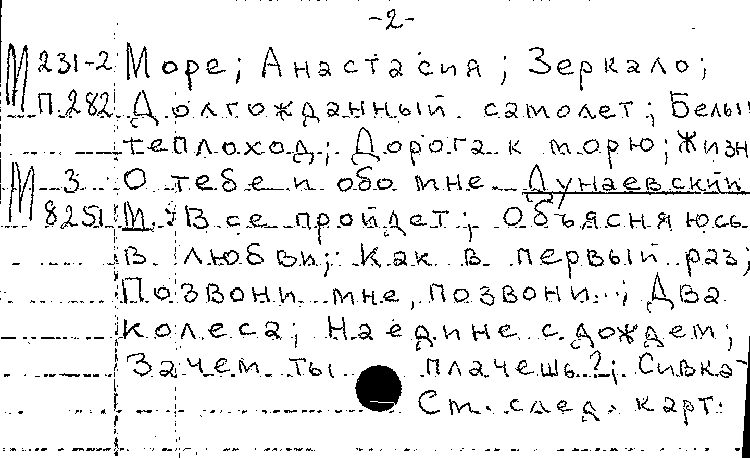 -2-
М 231-2 Море; Анастасия; Зеркало;
П 282 Долгожданный самолет; Белый
теплоход; Дорога к морю; Жизн
М 3 О тебе и обо мне. Дунаевский
8251 М. : Все пройдет; Объяснюсь
в любви; Как в первый раз;
Позвони мне, позвони..; Два
колеса; Наедине с дождем;
Зачем ты плачешь?; Сивка-
См. след. карт.